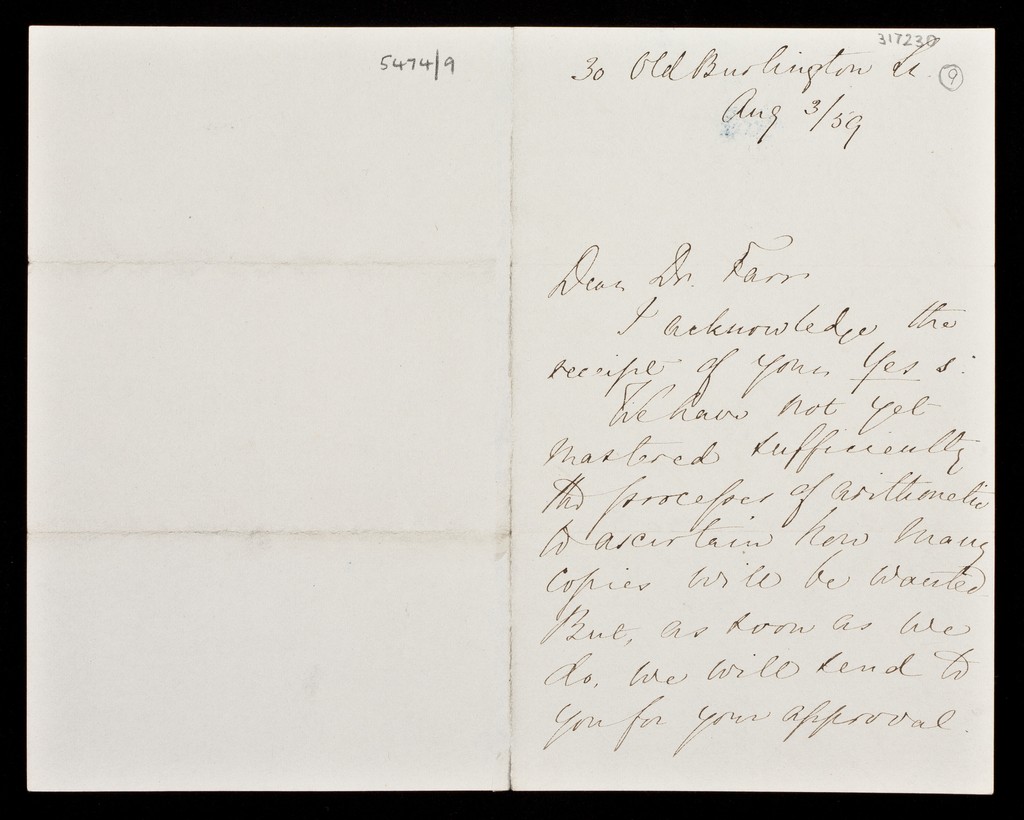 5474/9
317230
30 Old Burlington St.
9
Aug 3/59
Dear Dr. Farr
I acknowledge the
receipt of your Yes s:
We have not yet
mastered sufficiently
the processes of arithmetic
to ascertain how many
copies will be wanted
But, as soon as we
do, we will send to
you for your approval.